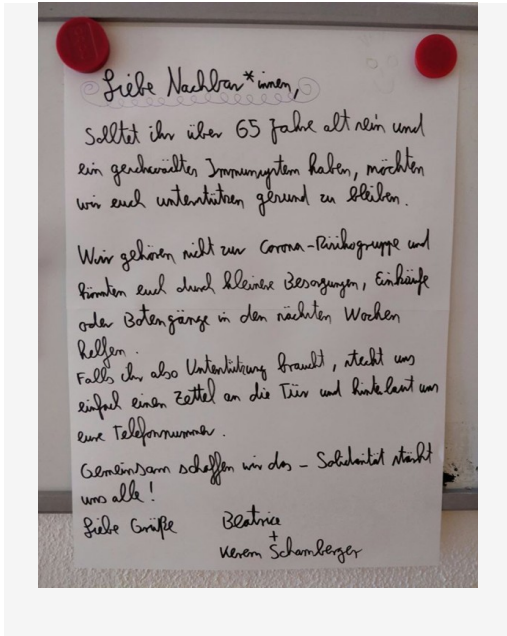 Liebe Nachbar*innen,
Solltet ihr über 65 Jahre alt sein und
ein geschwächtes Immunsystem haben, möchten
wir euch unterstützen gesund zu bleiben.
Wir gehören nicht zur Corona-Risikogruppe und
könnten euch durch kleinere Besorgungen, Einkäufe
oder Botengänge in den nächsten Wochen
helfen.
Falls ihr also Unterstützung braucht, steckt uns
einfach einen Zettel an die Tür und hinterlasst uns
eure Telefonnummer.
Gemeinsam schaffen wir das – Solidarität stärkt
uns alle!
Liebe Grüße Beatrice
+
Kerem Schamberger